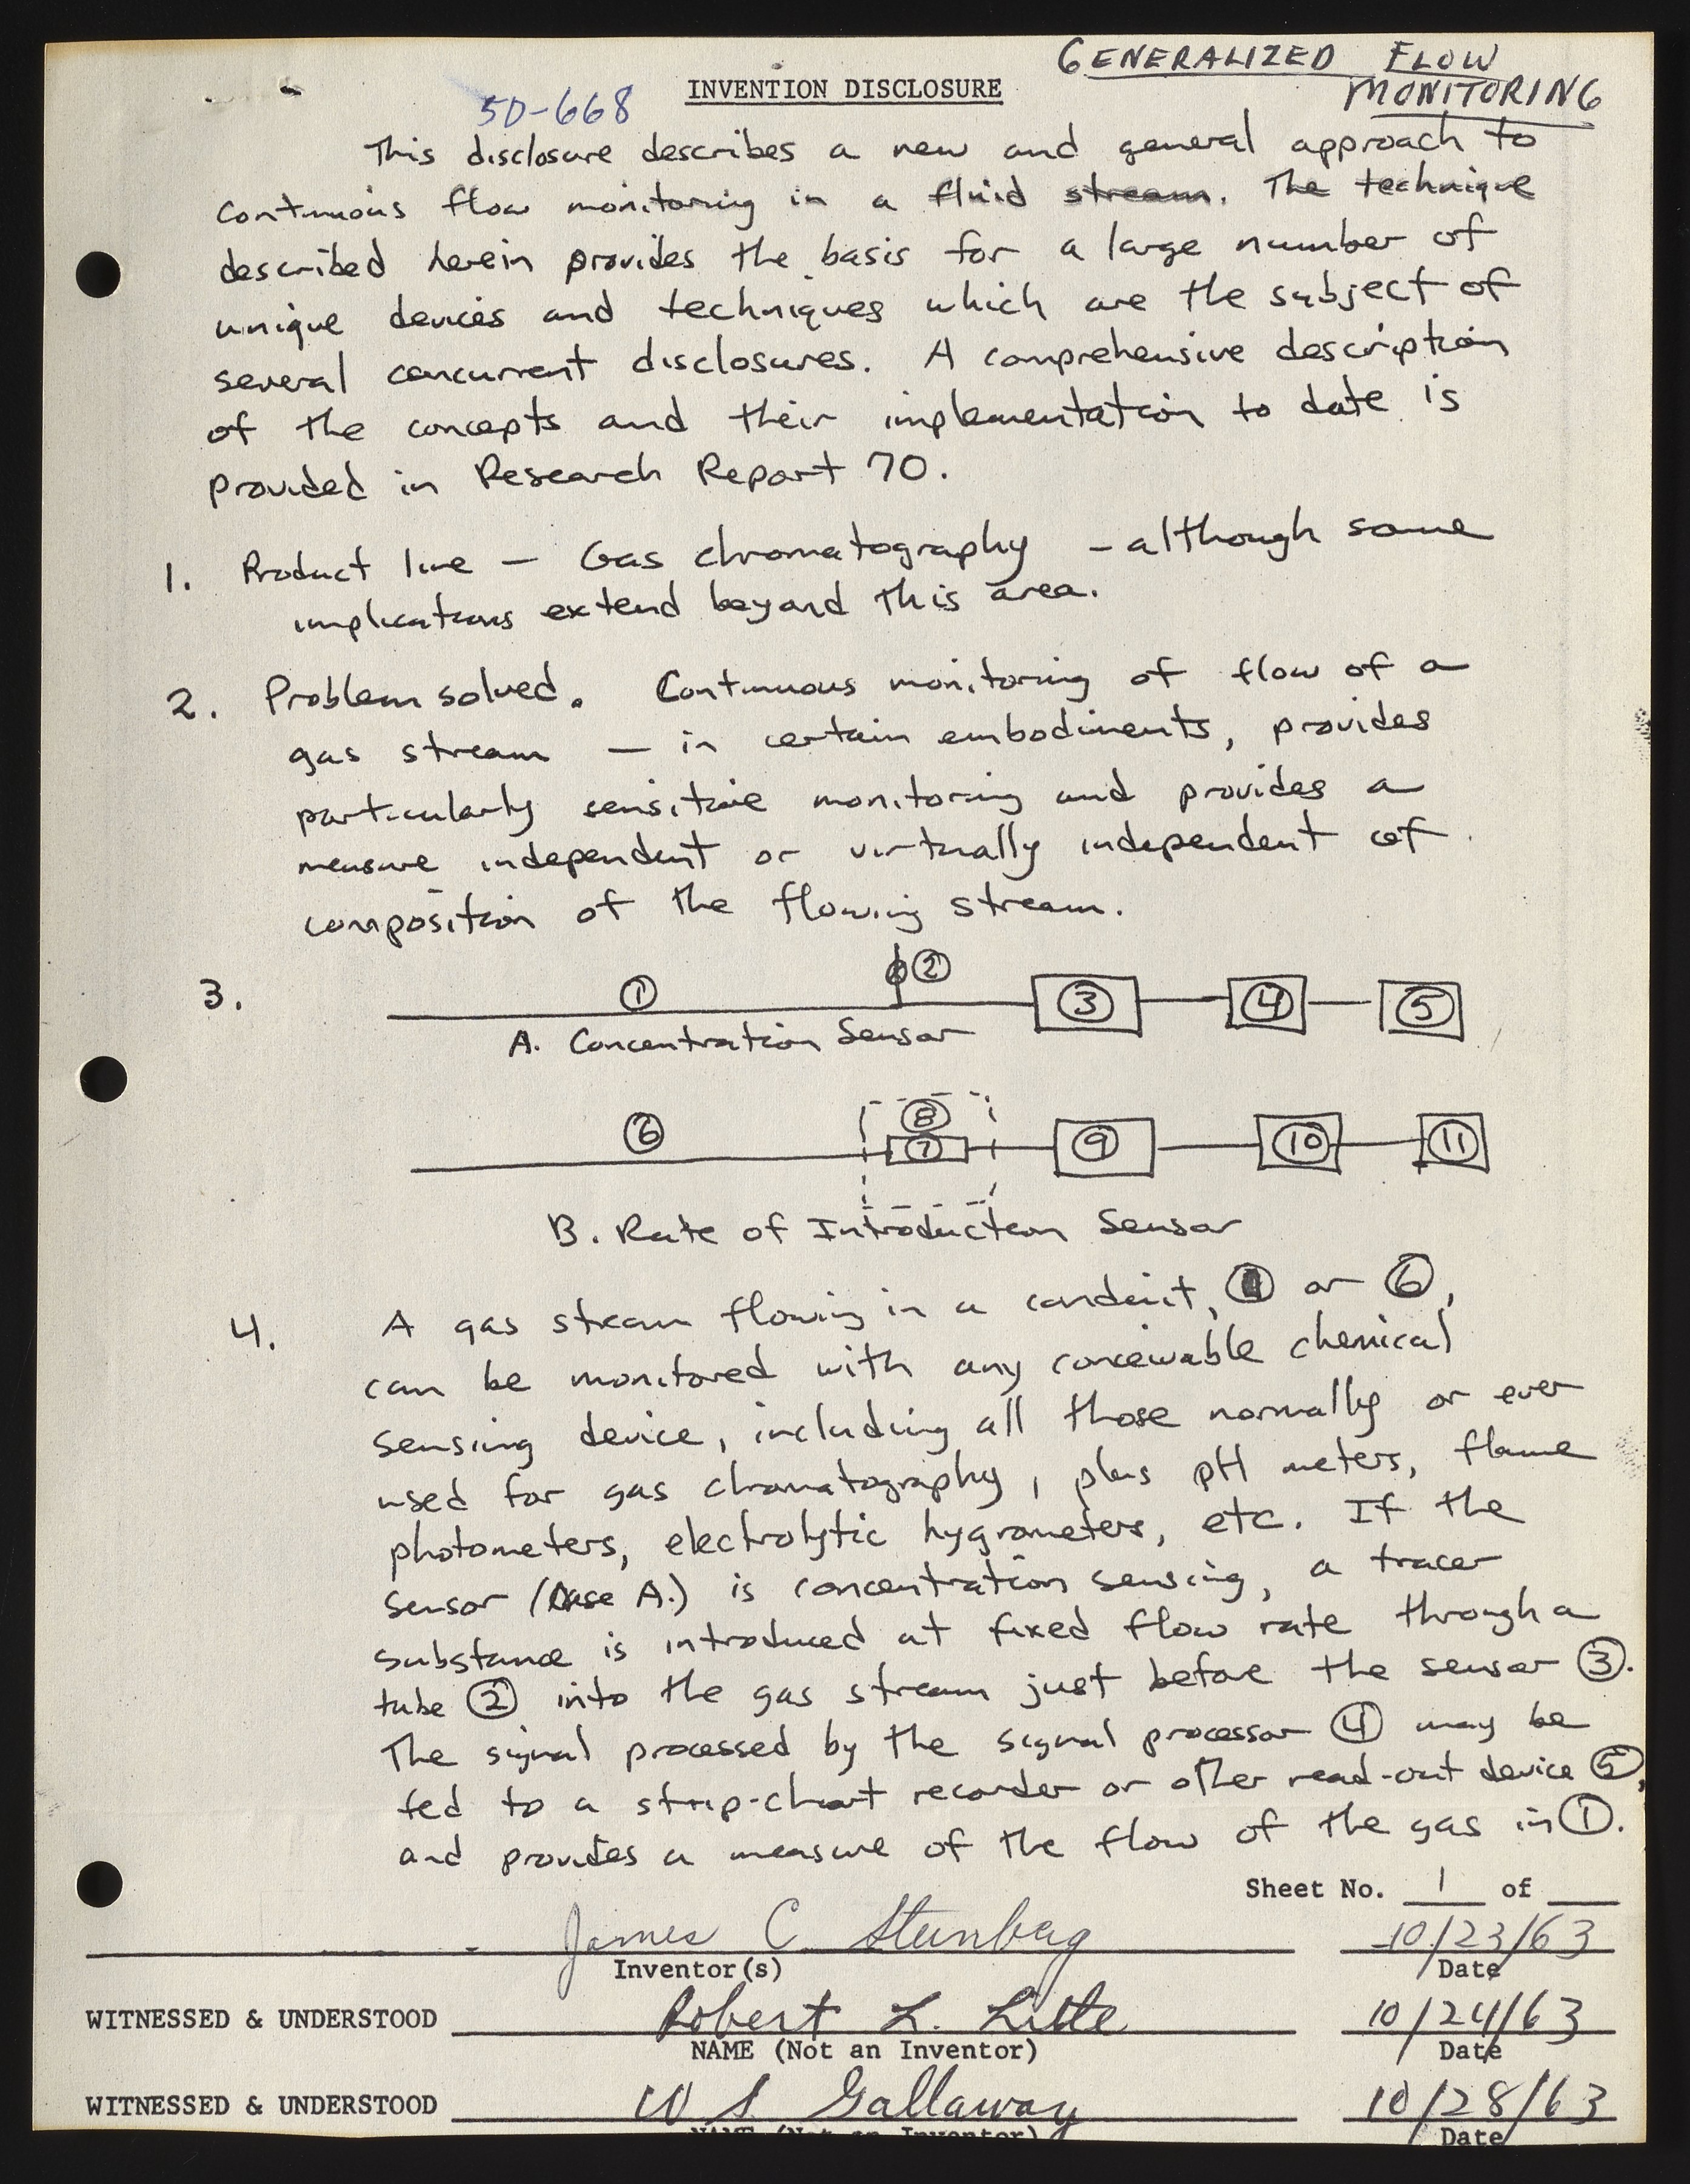 GENERALIZED FLOW
INVENTION DISCLOSURE
MONITORING
50-668
This disclosure describes a new and general approach to
continuous flow monitoring in a fluid stream. The technique
described herein provides the basis for a large number of
unique devices and techniques which are the subject of
several concurrent disclosures. A comprehensive description
of the concepts and their implementation to date is
provided in Research Report 70.
1. Product line — Gas chromatography - although some
implications extend beyond this area.
2. Problem solved. Continuous monitoring of flow of a
gas stream — in certain embodiments, provides
particularly sensitive monitoring and provides a
measure independent or virtually independent of
composition of the flowing stream.
3. ① ② ③ ④ ⑤
A. Concentration Sensor
⑥ ⑧ ⑦ ⑨ ⑩ ⑪
B. Rate of Introduction Sensor
4. A gas stream flowing in a conduit, ① or ⑥,
can be monitored with any conceivable chemical
sensing device, including all those normally or ever
used for gas chromatography, plus pH meters, flame
photometers, electrolytic hygrometers, etc. If the
sensor (Case A.) is concentration sensing, a tracer
substance is introduced at fixed flow rate through a
tube ② into the gas stream just before the sensor ③.
The signal processed by the signal processor ④ may be
fed to a strip-chart recorder or other read-out device ⑤,
and provides a measure of the flow of the gas in ①.
Sheet No. 1 of
James C. Sternberg 10/23/63
Inventor(s) Date
WITNESSED & UNDERSTOOD Robert L. Little 10/24/63
NAME (Not an Inventor) Date
WITNESSED & UNDERSTOOD W S Gallaway 10/28/63
NAME (Not an Inventor) Date